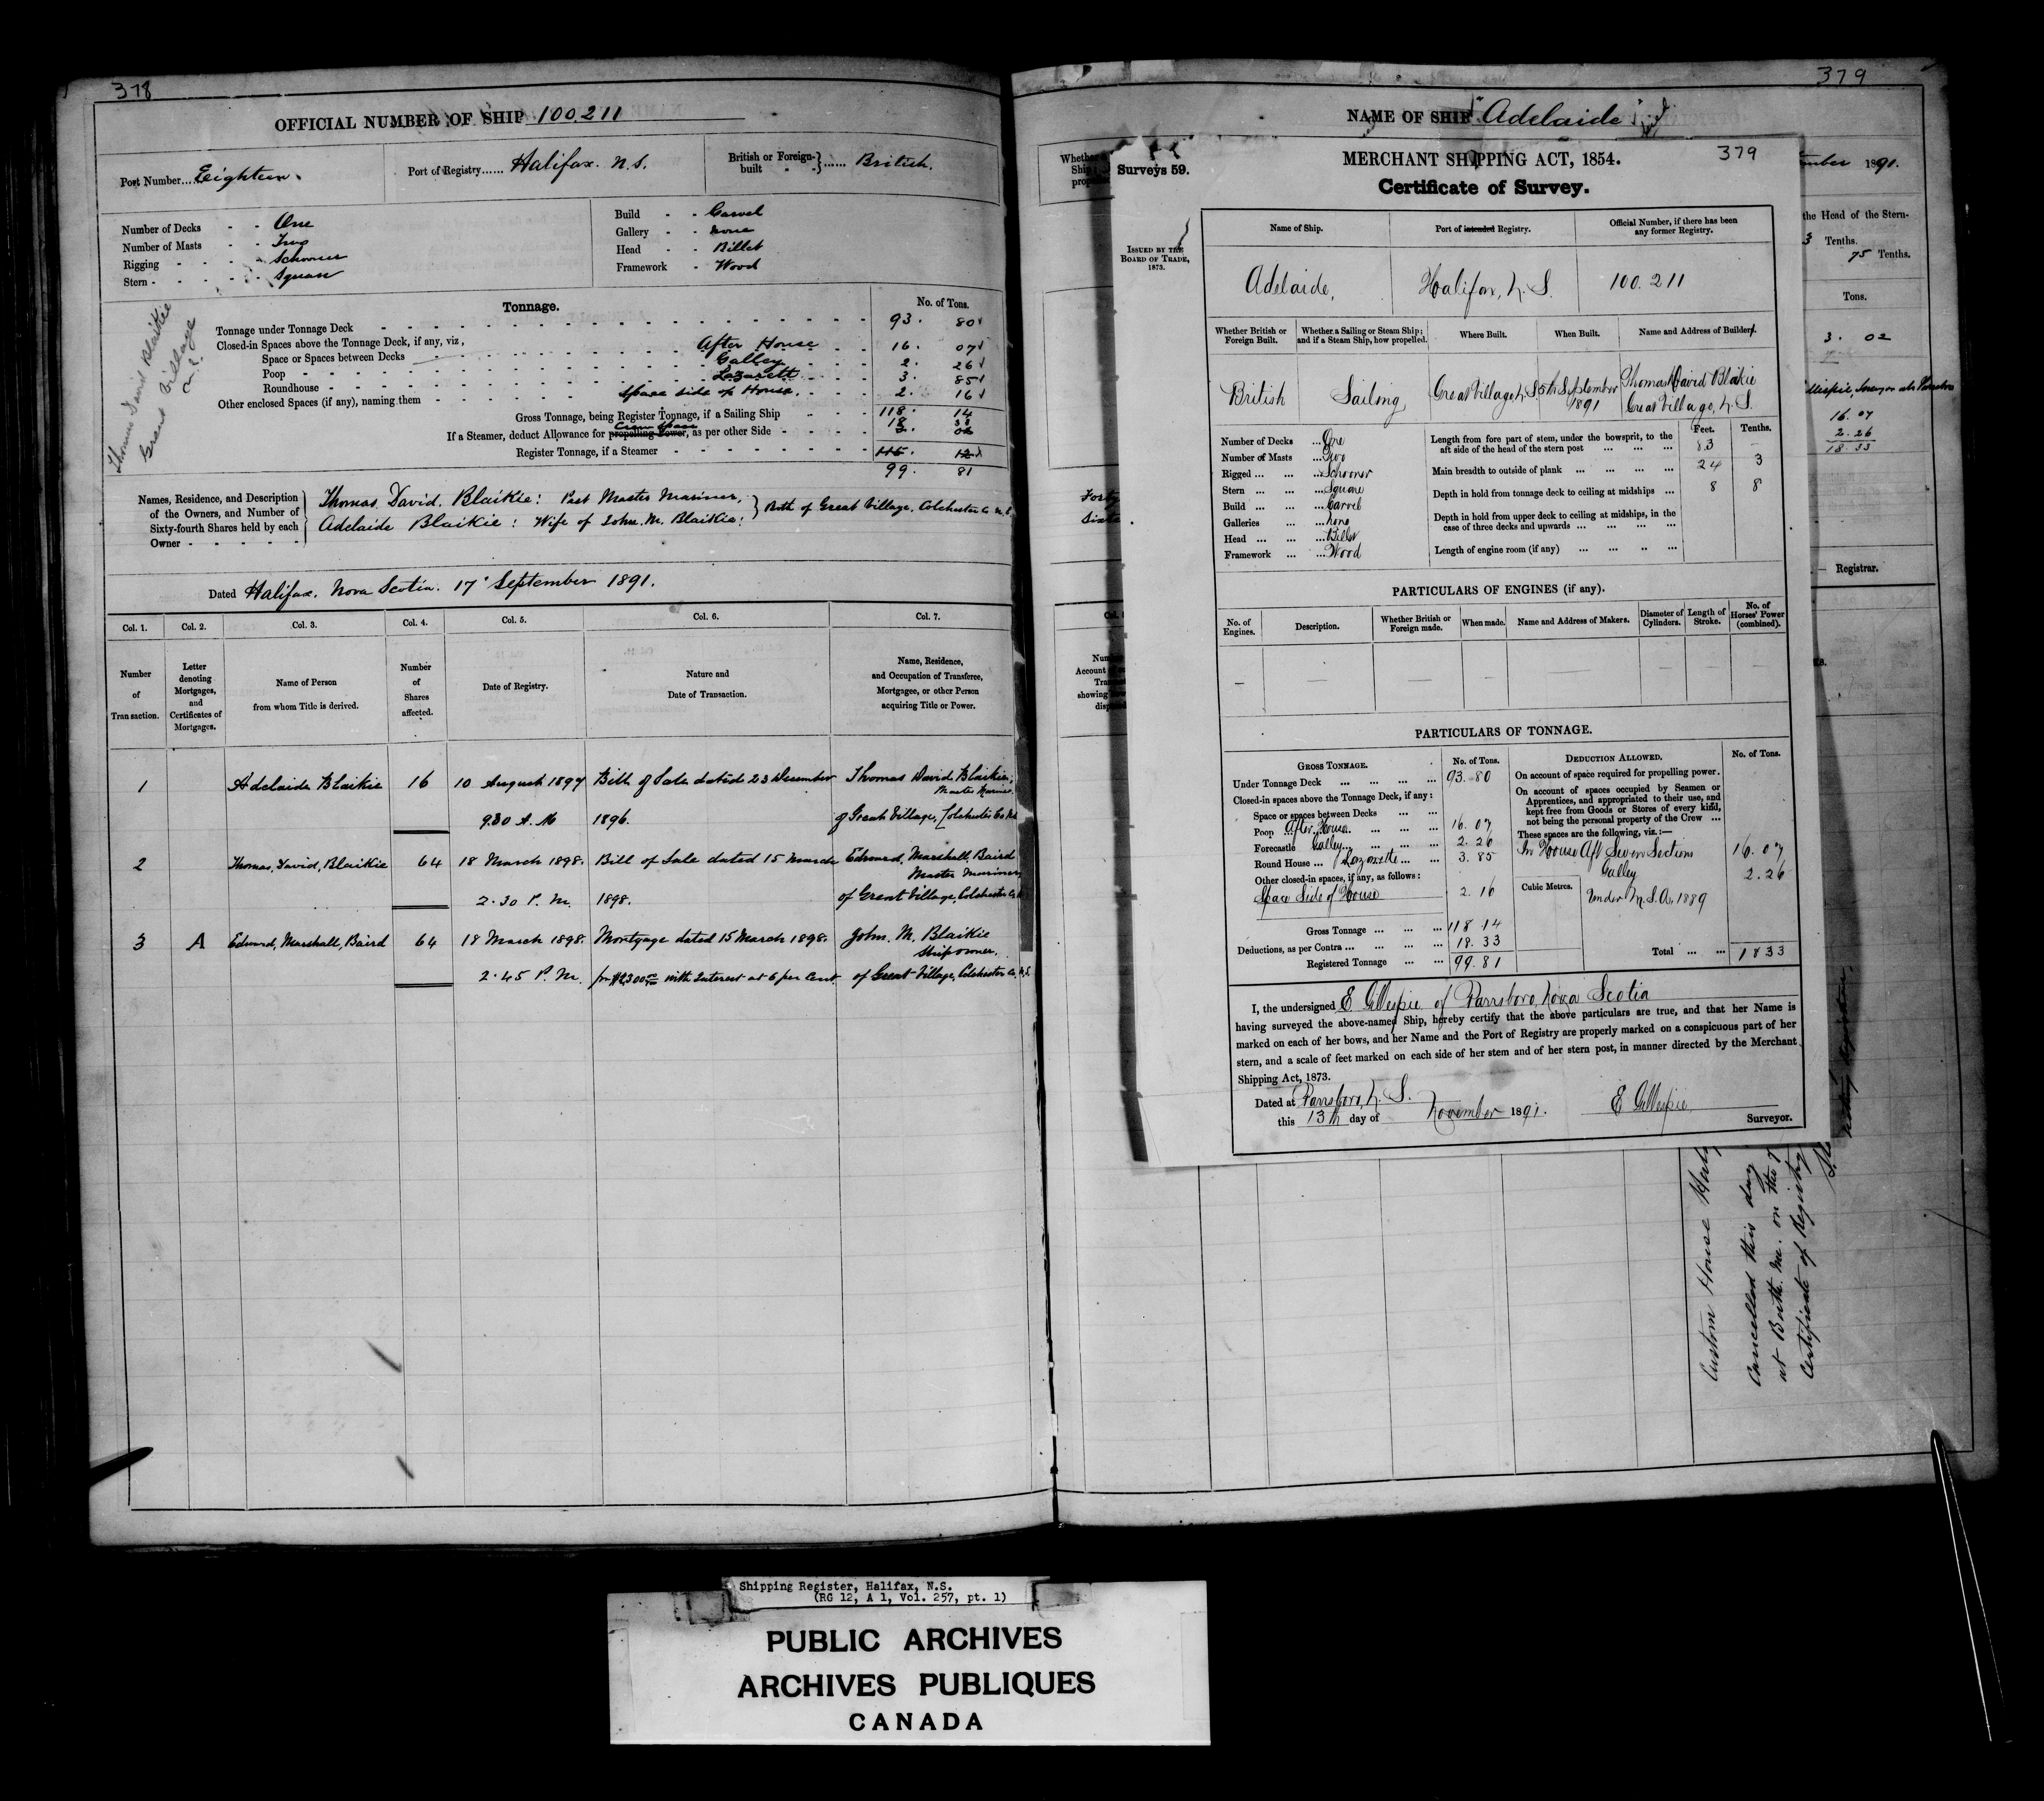 378
OFFICIAL NUMBER OF SHIP 100.211
Port Number... Eighteen.
Port of Registry...... Halifax. N.S.
British or Foreign-built } ...... British.
Number of Decks - - One
Number of Masts - - Two
Rigging - - - - Schooner
Stern - - - - - Square
Build - - Carvel
Gallery - - none
Head - - Billet
Framework - Wood
Thomas David Blaikie
Great Village
N.S.
Tonnage.
No. of Tons.
Tonnage under Tonnage Deck 93. 80
Closed-in Spaces above the Tonnage Deck, if any, viz,
Space or Spaces between Decks After House 16. 07
Poop Galley 2. 26
Roundhouse Lazarett 3. 85
Other enclosed Spaces (if any), naming them Space side of House. 2. 16
Gross Tonnage, being Register Tonnage, if a Sailing Ship 118. 14
If a Steamer, deduct Allowance for propelling Power, as per other Side Crew Space 18 33
3. 02
Register Tonnage, if a Steamer 115. 12
99. 81
Names, Residence, and Description of the Owners, and Number of Sixty-fourth Shares held by each Owner
Thomas. David. Blaikie: Part Master Mariner,
Adelaide Blaikie: Wife of John. M. Blaikie:
} Both of Great Village, Colchester Co N.S.
Dated Halifax. Nova Scotia. 17 September 1891.
Col. 1. Col. 2. Col. 3. Col. 4. Col. 5. Col. 6. Col. 7.
Number of Transaction.
Letter denoting Mortgages, and Certificates of Mortgages.
Name of Person from whom Title is derived.
Number of Shares affected.
Date of Registry.
Nature and Date of Transaction.
Name, Residence, and Occupation of Transferee, Mortgagee, or other Person acquiring Title or Power.
1 Adelaide Blaikie 16 10 August 1897 Bill of Sale dated 23 December Thomas David Blaikie,
Master Mariner
9.30 A. M 1896. of Great Village, Colchester Co N.S.
2 Thomas, David, Blaikie 64 18 March 1898. Bill of Sale dated 15 March Edward, Marshall, Baird
Master Mariner
2.30 P. M. 1898. of Great Village, Colchester Co
3 A Edward, Marshall, Baird 64 18 March 1898. Mortgage dated 15 March 1898. John. M. Blaikie
Shipowner.
2.45 P. M. for $2300 with Interest at 6 per Cent. of Great Village, Colchester Co. N.S.
379
NAME OF SHIP "Adelaide"
Surveys 59.
ISSUED BY THE BOARD OF TRADE, 1873.
MERCHANT SHIPPING ACT, 1854.
379
Certificate of Survey.
Name of Ship.
Port of intended Registry.
Official Number, if there has been any former Registry.
Adelaide, Halifax, N. S. 100.211
Whether British or Foreign Built.
Whether a Sailing or Steam Ship; and if a Steam Ship, how propelled.
Where Built.
When Built.
Name and Address of Builders.
British Sailing Great Village, N.S. 5th September 1891 Thomas David Blaikie Great Village, N. S.
Number of Decks ... One
Number of Masts ... Two
Rigged ... ... Schooner
Stern ... ... Square
Build ... ... Carvel
Galleries ... ... None
Head ... ... Billet
Framework ... ... Wood
Feet. Tenths.
Length from fore part of stem, under the bowsprit, to the aft side of the head of the stern post 83 —
Main breadth to outside of plank 24 3
Depth in hold from tonnage deck to ceiling at midships 8 8
Depth in hold from upper deck to ceiling at midships, in the case of three decks and upwards
Length of engine room (if any)
PARTICULARS OF ENGINES (if any).
No. of Engines.
Description.
Whether British or Foreign made.
When made.
Name and Address of Makers.
Diameter of Cylinders.
Length of Stroke.
No. of Horses' Power (combined).
PARTICULARS OF TONNAGE.
GROSS TONNAGE. No. of Tons.
Under Tonnage Deck 93.80
Closed-in spaces above the Tonnage Deck, if any:
Space or spaces between Decks
Poop After House 16.07
Forecastle Galley 2.26
Round House Lazarette 3.85
Other closed-in spaces, if any, as follows:
Space Side of House 2.16
Gross Tonnage 118 14
Deductions, as per Contra 18.33
Registered Tonnage 99.81
DEDUCTION ALLOWED. No. of Tons.
On account of space required for propelling power.
On account of spaces occupied by Seamen or Apprentices, and appropriated to their use, and kept free from Goods or Stores of every kind, not being the personal property of the Crew
These spaces are the following, viz.:—
In House Aft Seven Sections 16.07
Galley 2.26
Cubic Metres. Under M.S.A. 1889
Total 18 33
I, the undersigned E Gillespie of Parrsboro, Nova Scotia
having surveyed the above-named Ship, hereby certify that the above particulars are true, and that her Name is
marked on each of her bows, and her Name and the Port of Registry are properly marked on a conspicuous part of her
stern, and a scale of feet marked on each side of her stem and of her stern post, in manner directed by the Merchant
Shipping Act, 1873.
Dated at Parrsboro, N. S.
this 13th day of November 1891. E Gillespie
Surveyor.
1891.
the Head of the Stern-
3 Tenths.
75 Tenths.
Tons.
3. 02
16.07
2.26
18.33
Registrar.
Custom House
Cancelled this day
at Berth. Me. on the
Certificate of Registry
Shipping Register, Halifax, N.S.
(RG 12, A 1, Vol. 257, pt. 1)
PUBLIC ARCHIVES
ARCHIVES PUBLIQUES
CANADA